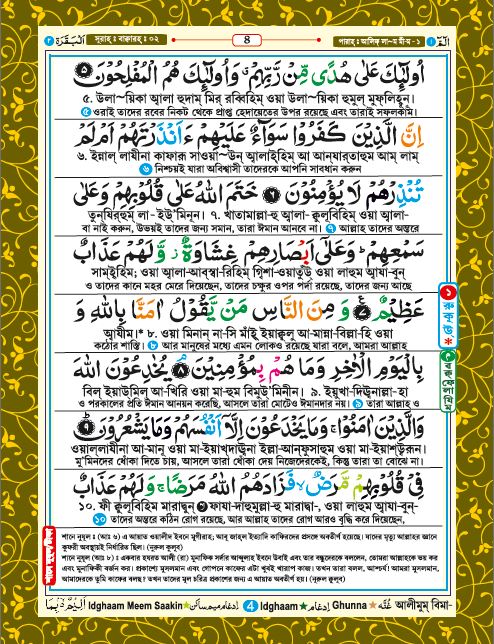 الٓمّٓ ١ পারাহ্ : আলিফ্ লা~ম মী~ম - ১ 8 সূরাহ্ : বাক্বারাহ্ : ০২ اَلْبَقَرَة ٢
اُولٰٓئِكَ عَلٰى هُدًى مِّنْ رَّبِّهِمْ وَاُولٰٓئِكَ هُمُ الْمُفْلِحُوْنَ ۝٥
৫. উলা~য়িকা আ'লা হুদাম্ মির্ রব্বিহিম্ ওয়া উলা~য়িকা হুমুল্ মুফ্লিহূন্।
৫ ওরাই তাদের রবের নিকট থেকে প্রাপ্ত হেদায়েতের উপর রয়েছে এবং তারাই সফলকাম।
اِنَّ الَّذِيْنَ كَفَرُوْا سَوَآءٌ عَلَيْهِمْ ءَاَنْذَرْتَهُمْ اَمْ لَمْ
৬. ইন্নাল্ লাযীনা কাফারূ সাওয়া~উন্ আ'লাইহিম্ আ আন্যার্তাহুম আম্ লাম্
৬ নিশ্চয়ই যারা অবিশ্বাসী তাদেরকে আপনি সাবধান করুন
تُنْذِرْهُمْ لَا يُؤْمِنُوْنَ ۝٦ خَتَمَ اللّٰهُ عَلٰى قُلُوْبِهِمْ وَعَلٰى
তুন্যির্হুম্ লা- ইউ'মিনূন্। ৭. খাতামাল্লা-হু আ'লা- ক্বুলূবিহিম্ ওয়া আ'লা-
বা নাই করুন, উভয়ই তাদের জন্য সমান, তারা ঈমান আনবে না। ৭ আল্লাহ তাদের অন্তরে
سَمْعِهِمْ وَعَلٰى اَبْصَارِهِمْ غِشَاوَةٌ وَّلَهُمْ عَذَابٌ
সাম্ই'হিম্; ওয়া আ'লা-আব্স্বা-রিহিম্ গ্বিশা-ওয়াতুউঁ ওয়া লাহুম আ'যা-বুন্
ও তাদের কানে মহর মেরে দিয়েছেন, তাদের চক্ষুর ওপর পর্দা রয়েছে, তাদের জন্য আছে
عَظِيْمٌ ۝٧ وَمِنَ النَّاسِ مَنْ يَّقُوْلُ اٰمَنَّا بِاللّٰهِ وَ
আ'যীম।* ৮. ওয়া মিনান্ না-সি মাঁই ইয়াক্বূলু আ-মান্না-বিল্লা-হি ওয়া
কঠোর শাস্তি। ৮ আর মানুষের মধ্যে এমন লোকও রয়েছে যারা বলে, আমরা আল্লাহ
بِالْيَوْمِ الْاٰخِرِ وَمَا هُمْ بِمُؤْمِنِيْنَ ۝٨ يُخٰدِعُوْنَ اللّٰهَ
বিল্ ইয়াউমিল্ আ-খিরি ওয়া মা-হুম বিমু'মিনীন। ৯. ইয়ুখা-দিঊ'নাল্লা-হা
ও পরকালের প্রতি ঈমান আনয়ন করেছি, আসলে তারা মোটেও ঈমানদার নয়। ৯ তারা আল্লাহ ও
وَالَّذِيْنَ اٰمَنُوْا وَمَا يَخْدَعُوْنَ اِلَّآ اَنْفُسَهُمْ وَمَا يَشْعُرُوْنَ ۝٩
ওয়াল্লাযীনা আ-মানূ ওয়া মা-ইয়াখ্দাঊ'না ইল্লা-আন্ফুসাহুম ওয়া মা-ইয়াশ্উ'রূন।
মু'মিনদের ধোঁকা দিতে চায়, আসলে তারা ধোঁকা দেয় নিজেদেরকেই, কিন্তু তারা তা বোঝে না।
فِيْ قُلُوْبِهِمْ مَّرَضٌ فَزَادَهُمُ اللّٰهُ مَرَضًا وَلَهُمْ عَذَابٌ
১০. ফী ক্বুলূবিহিম্ মারাদুন্ ফাযা-দাহুমুল্লা-হু মারাদা-, ওয়া লাহুম্ আ'যা-বুন্-
১০ তাদের অন্তরে কঠিন রোগ রয়েছে, আর আল্লাহ তাদের রোগ আরও বৃদ্ধি করে দিয়েছেন,
১ রুকূউ*
শানে নুযুল : (আঃ ৬) এ আয়াত ওয়ালীদ ইবনে মুগীরাহ; আবু জাহল ইত্যাদি কাফিরদের প্রসঙ্গে অবতীর্ণ হয়েছে। যাদের মৃত্যু আল্লাহর জ্ঞানে
কুফরী অবস্থায়ই নির্ধারিত ছিল। (নূরুল কুলূব)
শানে নুযুল (আঃ ৮) : একবার হযরত আলী (রা) মুনাফিক সর্দার আব্দুল্লাহ ইবনে উবাই এবং তার বন্ধুদেরকে বললেন, তোমরা আল্লাহকে ভয় কর
এবং মুনাফিকী বর্জন কর। প্রকাশ্যে মুসলমান এবং গোপনে কাফের এটা খুবই খারাপ কাজ। তখন তারা বলল, আশ্চর্য! আমরা মুসলমান,
আমাদেরকে তুমি কাফের বলছ! তখন তাদের মূল চরিত্র প্রকাশের জন্য এ আয়াত অবতীর্ণ হয়। (নূরুল কুলূব)
اَلِيْمٌۢ بِمَا Idghaam Meem Saakin اِدْغَام مِيم سَاكِن 4 Idghaam اِدْغَام Ghunna غُنَّه আলীমুম্ বিমা-